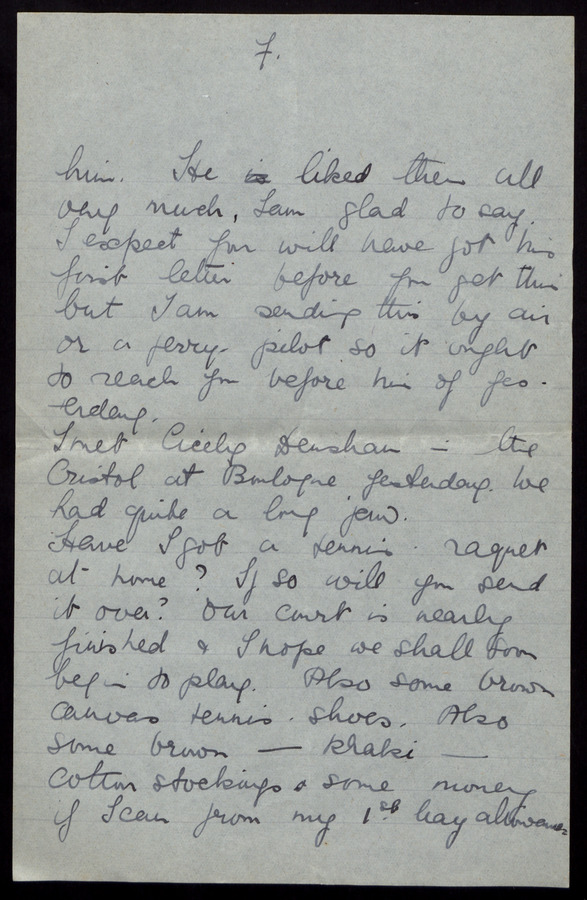 7.
him. He is liked them all
very much, I am glad to say.
I expect you will have got his
first letter before you get this
but I am sending this by air
or a ferry- pilot so it ought
to reach you before his of yes-
terday.
I met Cicely Denshan in the
Cristol at Boulogne yesterday. We
had quite a long jaw.
Have I got a tennis raquet
at home? If so will you send
it over? Our court is nearly
finished & I hope we shall soon
begin to play. Also some brown
canvas tennis-shoes. Also
some brown — khaki —
cotton stockings & some money
if I can from my 1st pay allowance